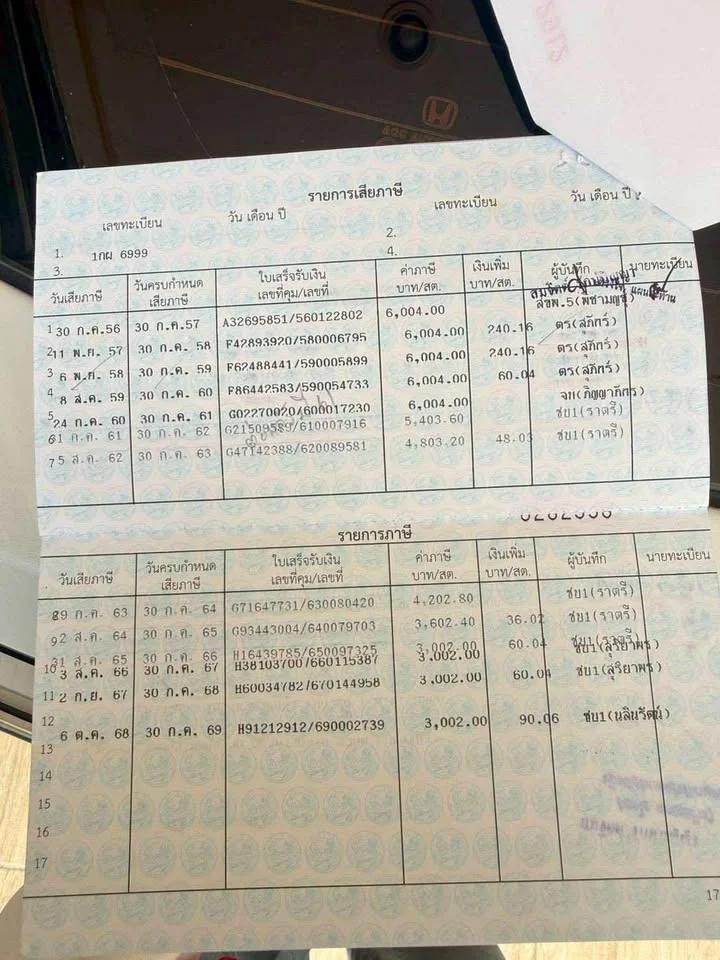 รายการเสียภาษี
เลขทะเบียน วัน เดือน ปี เลขทะเบียน วัน เดือน ปี
1. 1กผ 6999 2.
3. 4.
วันเสียภาษี วันครบกำหนดเสียภาษี ใบเสร็จรับเงิน เลขที่คุม/เลขที่ ค่าภาษี บาท/สต. เงินเพิ่ม บาท/สต. ผู้บันทึก นายทะเบียน
1 30 ก.ค.56 30 ก.ค.57 A32695851/560122802 6,004.00
2 11 พ.ย. 57 30 ก.ค. 58 F42893920/580006795 6,004.00 240.16 ตร(สุภัทร์)
3 6 พ.ย. 58 30 ก.ค. 59 F62488441/590005899 6,004.00 240.16 ตร(สุภัทร์)
4 8 ส.ค. 59 30 ก.ค. 60 F86442583/590054733 6,004.00 60.04 ตร(สุภัทร์)
5 24 ก.ค. 60 30 ก.ค. 61 G02270020/600017230 6,004.00
61 ก.ค. 61 30 ก.ค. 62 G21509589/610007916 5,403.60 ชบ1(ราตรี)
75 ส.ค. 62 30 ก.ค. 63 G47142388/620089581 4,803.20 48.03 ชบ1(ราตรี)
รายการภาษี
วันเสียภาษี วันครบกำหนดเสียภาษี ใบเสร็จรับเงิน เลขที่คุม/เลขที่ ค่าภาษี บาท/สต. เงินเพิ่ม บาท/สต. ผู้บันทึก นายทะเบียน
29 ก.ค. 63 30 ก.ค. 64 G71647731/630080420 4,202.80 ชบ1(ราตรี)
9 2 ส.ค. 64 30 ก.ค. 65 G93443004/640079703 3,602.40 36.02 ชบ1(ราตรี)
31 ส.ค. 65 30 ก.ค. 66 H16439785/650097325 3,002.00 60.04 ชบ1(ราตรี)
10 3 ส.ค. 66 30 ก.ค. 67 H38103700/660115387 3,002.00 ชบ1(สุริยาพร)
11 2 ก.ย. 67 30 ก.ค. 68 H60034782/670144958 3,002.00 60.04 ชบ1(สุริยาพร)
12 6 ต.ค. 68 30 ก.ค. 69 H91212912/690002739 3,002.00 90.06 ชบ1(นลินรัตน์)
13
14
15
16
17
17